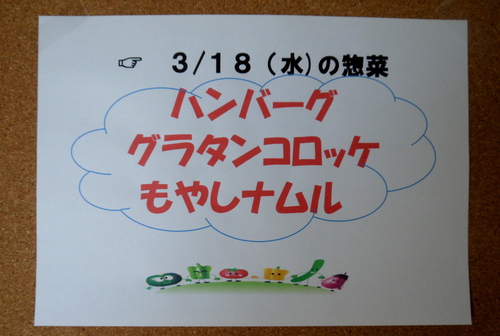 ☞ 3/18(水)の惣菜
ハンバーグ
グラタンコロッケ
もやしナムル